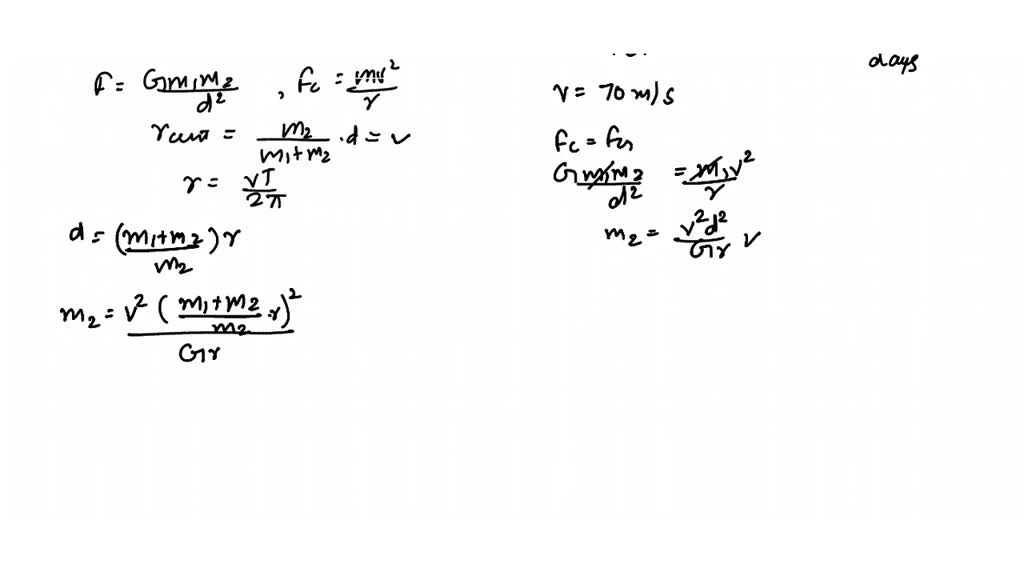 F = Gm₁m₂/d² , Fc = mv²/r
rcm = m₂/m₁+m₂ · d = r
r = vT/2π
d = (m₁+m₂/m₂) r
m₂ = v² (m₁+m₂/m₂ · r)² / Gr
days
v = 70 m/s
Fc = FG
Gm₁m₂/d² = m₁v²/r
m₂ = v²d²/Gr